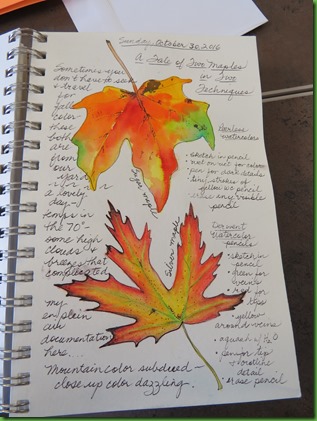 Sunday, October 30, 2016
A Tale of Two Maples
in Two
Techniques
Sometimes you
don't have to seek
& travel
for
fall
color -
these
two
are
from
our
yard
a lovely
day -
temps in
the 70's -
some high
clouds &
breeze that
complicated
my
en plein
air
documentation
here...
Mountain color subdued -
close up color dazzling.
Sugar maple
Silver maple
watercolors
• sketch in pencil
• wet on wet for colors
• pen for dark details
• tiny strokes of
yellow wc pencil
• erase any visible
pencil
Derwent
Watercolor
pencils
• sketch in
pencil
• green for
veins
• red for
tips
• yellow
around veins
• aquash w/ H2O
detail
• erase pencil